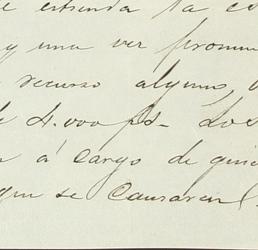 e estienda la co
y una vez pronun
recurso alguno,
de 4.000 ps. Los
á cargo de quie
que se causaren